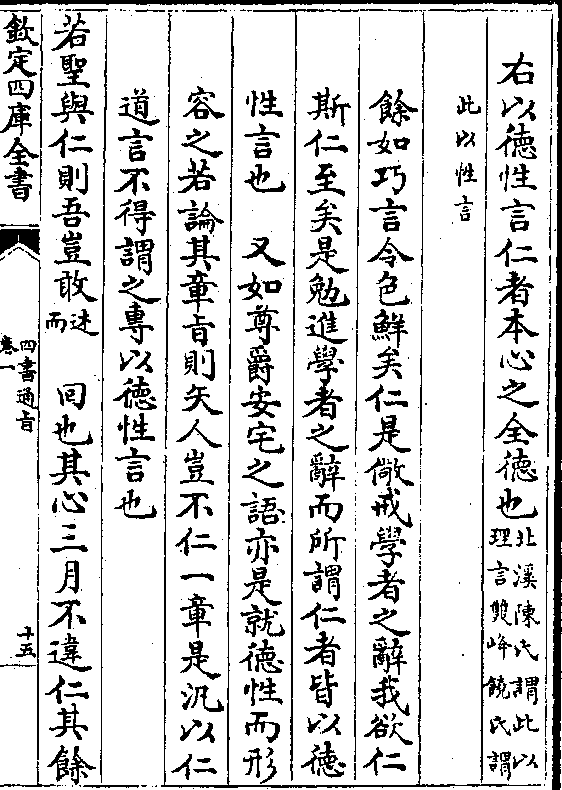 右以德性言仁者本心之全德也北溪陳氏謂此以理言雙峰饒氏謂
此以性言
餘如巧言令色鮮矣仁是儆戒學者之辭我欲仁
斯仁至矣是勉進學者之辭而所謂仁者皆以德
性言也　又如尊爵安宅之語亦是就德性而形
容之若論其章旨則矢人豈不仁一章是汎以仁
道言不得謂之專以德性言也
若聖與仁則吾豈敢述而　回也其心三月不違仁其餘
欽定四庫全書
四書通旨
卷一
十五